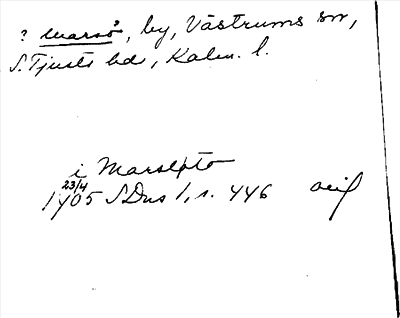 ? Marsö, by, Västrums sn,
S. Tjusts hd, Kalm. l.
i Marsepto
23/4
1405 SDns 1, s. 446